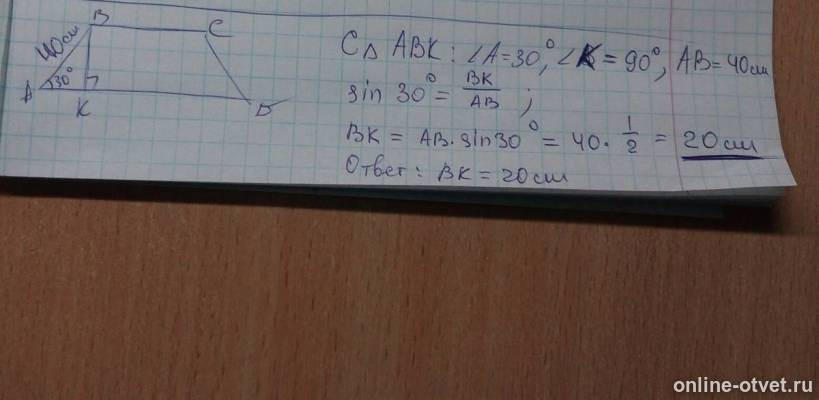 B
C
40см
30°
A
K
D
С △ ABK: ∠A=30°, ∠K=90°, AB=40см
sin 30° = BK/AB ;
BK = AB·sin30° = 40·1/2 = 20см
Ответ: BK=20см
online-otvet.ru